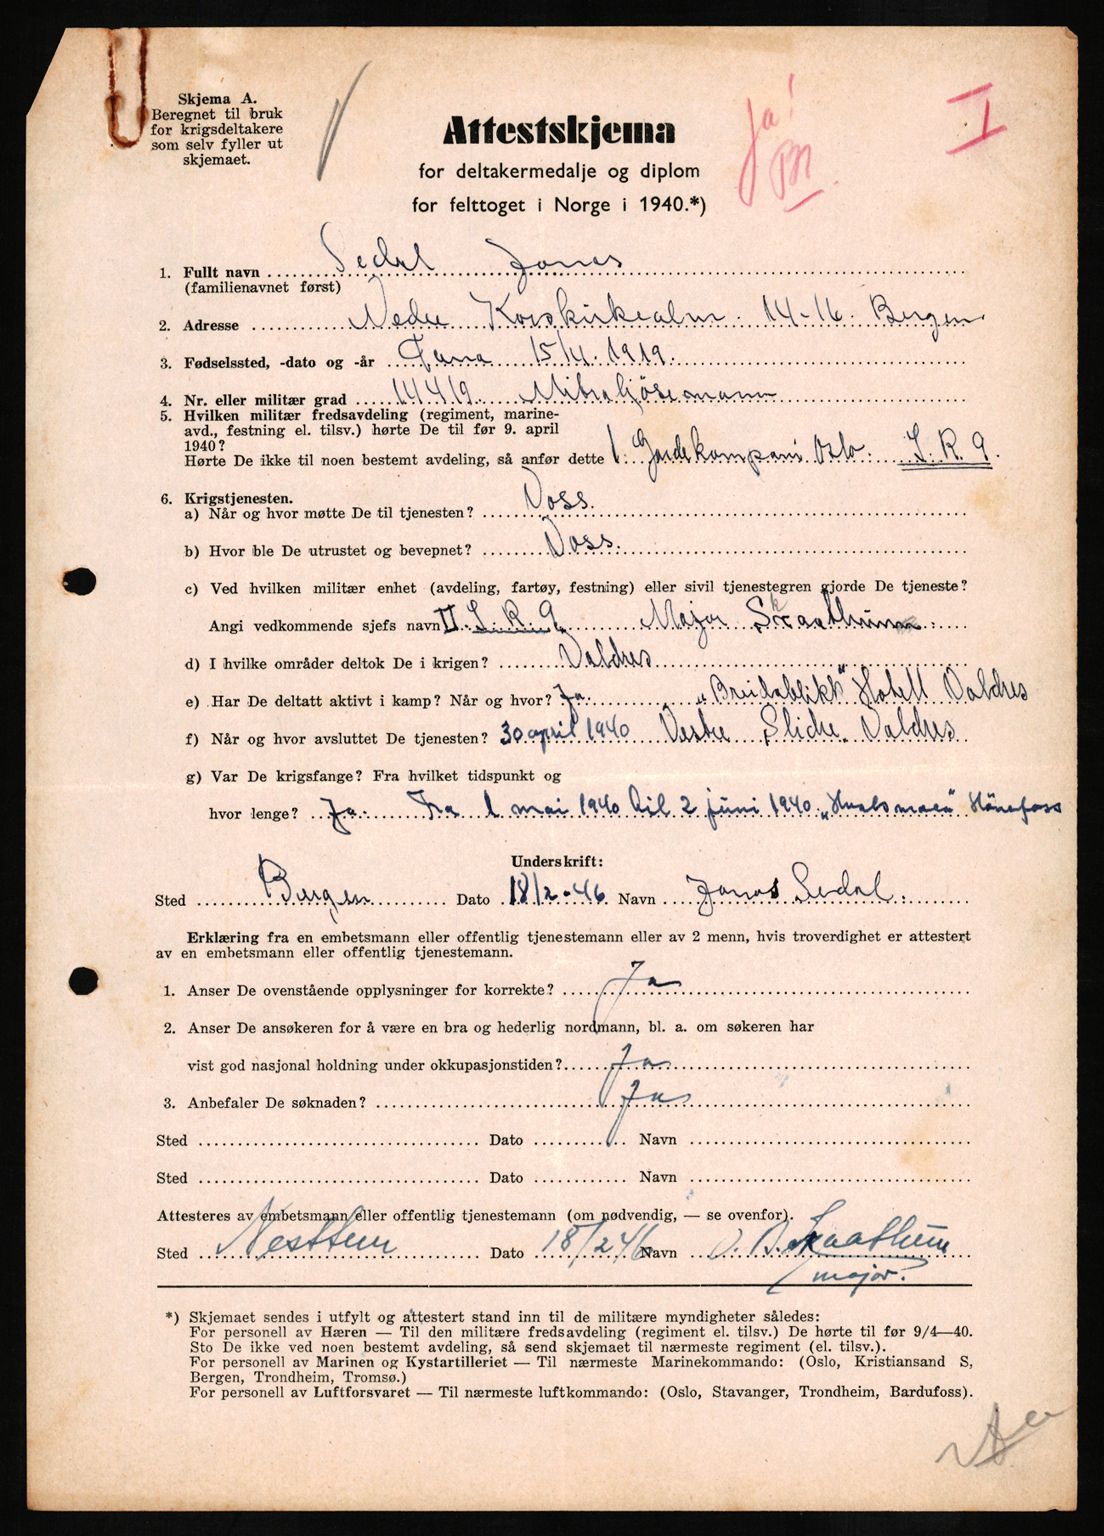 Skjema A.
Beregnet til bruk
for krigsdeltakere
som selv fyller ut
skjemaet.
Attestskjema
for deltakermedalje og diplom
for felttoget i Norge i 1940.*)
Ja!
I
1. Fullt navn Sedal Jonas
(familienavnet først)
2. Adresse Nedre Korskirkealm. 14-16. Bergen.
3. Fødselssted, -dato og -år Fana 15/4. 1919.
4. Nr. eller militær grad Mitraljøsemann
5. Hvilken militær fredsavdeling (regiment, marine-
avd., festning el. tilsv.) hørte De til før 9. april
1940?
Hørte De ikke til noen bestemt avdeling, så anfør dette 1. Gardekompani Oslo. I. R. 9.
6. Krigstjenesten.
a) Når og hvor møtte De til tjenesten? Voss.
b) Hvor ble De utrustet og bevepnet? Voss.
c) Ved hvilken militær enhet (avdeling, fartøy, festning) eller sivil tjenestegren gjorde De tjeneste?
Angi vedkommende sjefs navn II. I. R. 9. Major Skaathun.
d) I hvilke områder deltok De i krigen? Valdres
e) Har De deltatt aktivt i kamp? Når og hvor? Ja. „Breidablikk" Hotell Valdres
f) Når og hvor avsluttet De tjenesten? 30 april 1940 Vestre Slidre Valdres
g) Var De krigsfange? Fra hvilket tidspunkt og
hvor lenge? Ja. Fra 1 mai 1940 til 2 juni 1940 „Hvalsmoen" Hönefoss
Underskrift:
Sted Bergen Dato 18/2-46 Navn Jonas Sedal.
Erklæring fra en embetsmann eller offentlig tjenestemann eller av 2 menn, hvis troverdighet er attestert
av en embetsmann eller offentlig tjenestemann.
1. Anser De ovenstående opplysninger for korrekte? Ja
2. Anser De ansøkeren for å være en bra og hederlig nordmann, bl. a. om søkeren har
vist god nasjonal holdning under okkupasjonstiden? Ja
3. Anbefaler De søknaden? Ja
Sted Dato Navn
Sted Dato Navn
Attesteres av embetsmann eller offentlig tjenestemann (om nødvendig, — se ovenfor).
Sted Nesttun Dato 18/2 46 Navn Skaathun
major.
*) Skjemaet sendes i utfylt og attestert stand inn til de militære myndigheter således:
For personell av Hæren — Til den militære fredsavdeling (regiment el. tilsv.) De hørte til før 9/4—40.
Sto De ikke ved noen bestemt avdeling, så send skjemaet til nærmeste regiment (el. tilsv.).
For personell av Marinen og Kystartilleriet — Til nærmeste Marinekommando: (Oslo, Kristiansand S,
Bergen, Trondheim, Tromsø.)
For personell av Luftforsvaret — Til nærmeste luftkommando: (Oslo, Stavanger, Trondheim, Bardufoss).